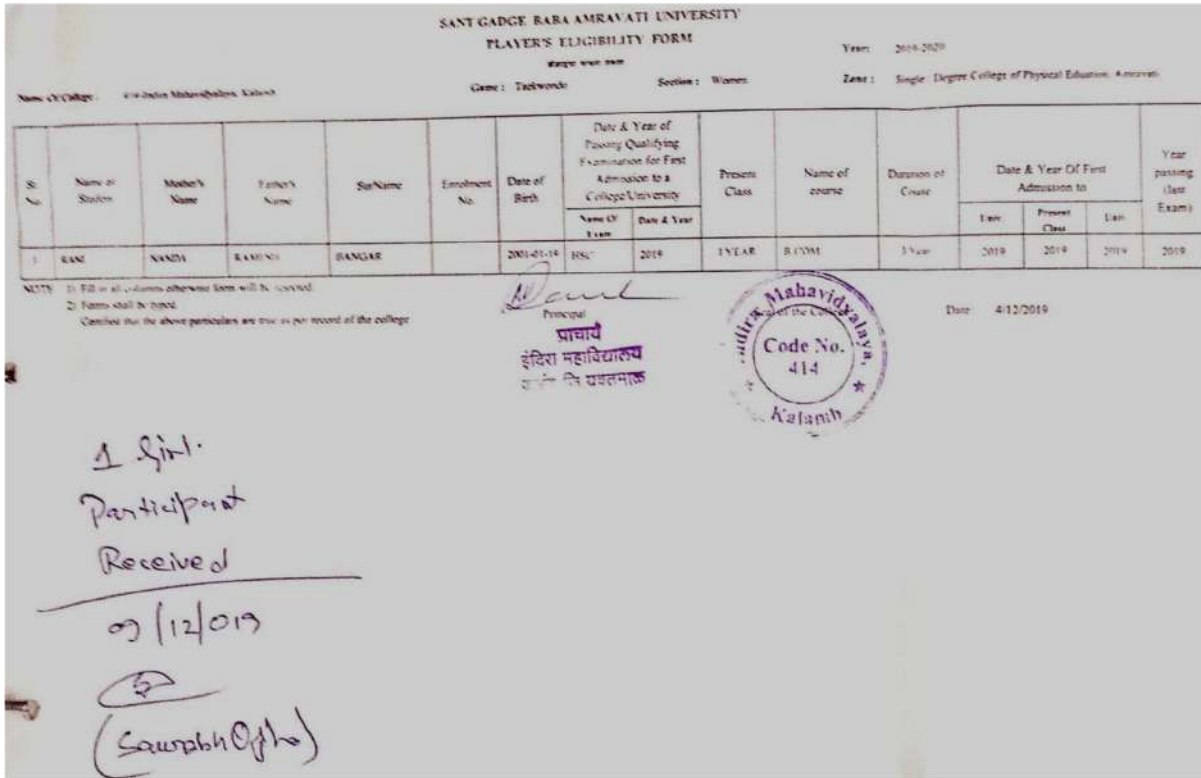 SANT GADGE BABA AMRAVATI UNIVERSITY
PLAYER'S ELIGIBILITY FORM
Year: 2019-2020
Name Of College: Indira Mahavidyalaya, Kalamb Game : Taekwondo Section : Women Zone : Single Degree College of Physical Eduation, Amravati
Sr. No. Name of Student Mother's Name Father's Name SurName Enrolment No. Date of Birth Date & Year of Passing Qualifying Examination for First Admission to a College/University Name Of Exam Date & Year Present Class Name of course Duration of Couse Date & Year Of First Admission to Univ. Present Class Univ. Year passing (last Exam)
1 RANI NANDA BANGAR 2001-01-19 HSC 2019 I YEAR B.COM 3 Year 2019 2019 2019 2019
NOTE 1) Fill in all columns otherwise form will be rejected.
2) Forms shall be typed.
Certified that the above particulars are true as per record of the college
Principal
प्राचार्य
इंदिरा महाविद्यालय
यवतमाळ
Seal of the College
Indira Mahavidyalaya,
Code No.
414
Kalamb
Date: 4/12/2019
1 Girl.
Participant
Received
09/12/019
(Saurabh Ojha)